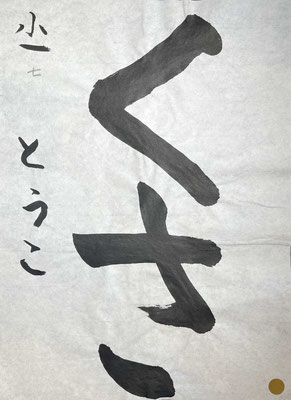 くさ
小一 七 とうこ